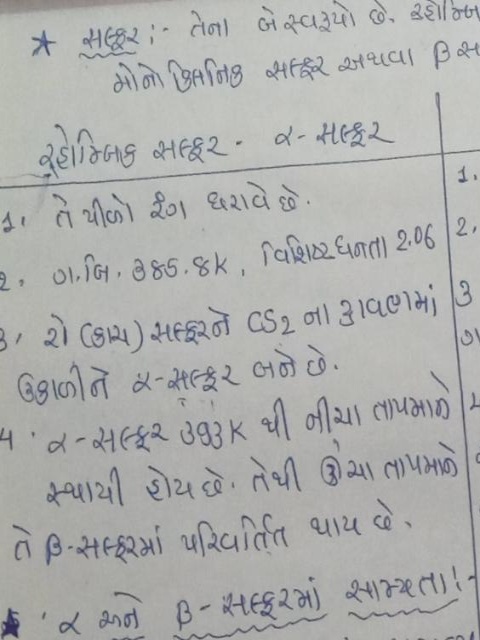 * સલ્ફર :- તેના બે સ્વરૂપો છે. રહોમ્બિ
મોનોક્લિનિક સલ્ફર અથવા β સ
રહોમ્બિક સલ્ફર - α - સલ્ફર
1. તે પીળો રંગ ધરાવે છે.
1.
2. ગ.બિ. 385.8K, વિશિષ્ટ ઘનતા 2.06
2.
3. રો (કાચ) સલ્ફરને CS2 ના દ્રાવણમાં
3
ઉકાળીને α-સલ્ફર બને છે.
4. α-સલ્ફર 393K થી નીચા તાપમાને
સ્થાયી હોય છે. તેથી ઊંચા તાપમાને
તે β-સલ્ફરમાં પરિવર્તિત થાય છે.
* α અને β - સલ્ફરમાં સામ્યતા :-